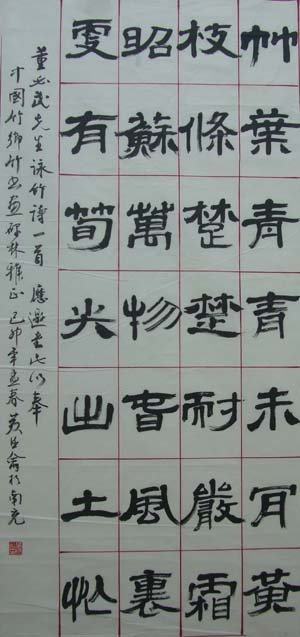 竹葉青青未肯黄
枝條楚楚耐嚴霜
昭蘇萬物春風裏
更有筍尖出土忙
董必武先生詠竹詩一首 應邀書此以奉
中國竹鄉竹書畫碑林雅正 己卯年孟春 於南充